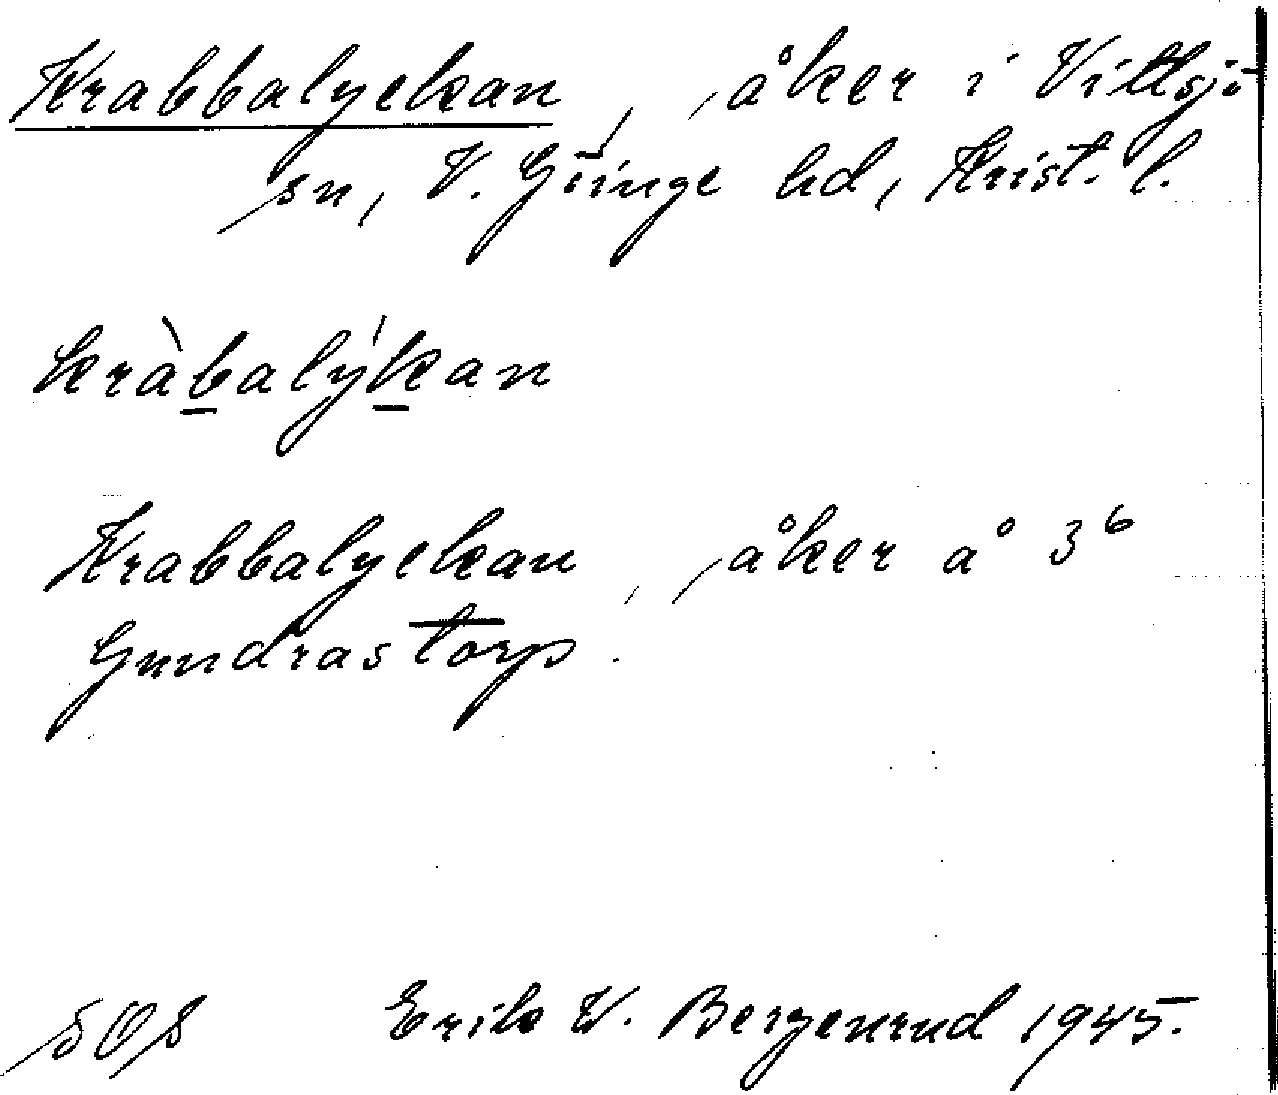 Krabbalyckan, åker i Vittsjö
sn, V. Göinge hd, Krist. l.
kràbalýkan
Krabbalyckan, åker å 3⁶
Gundrastorp.
SOS Erik W. Bergenrud 1945.